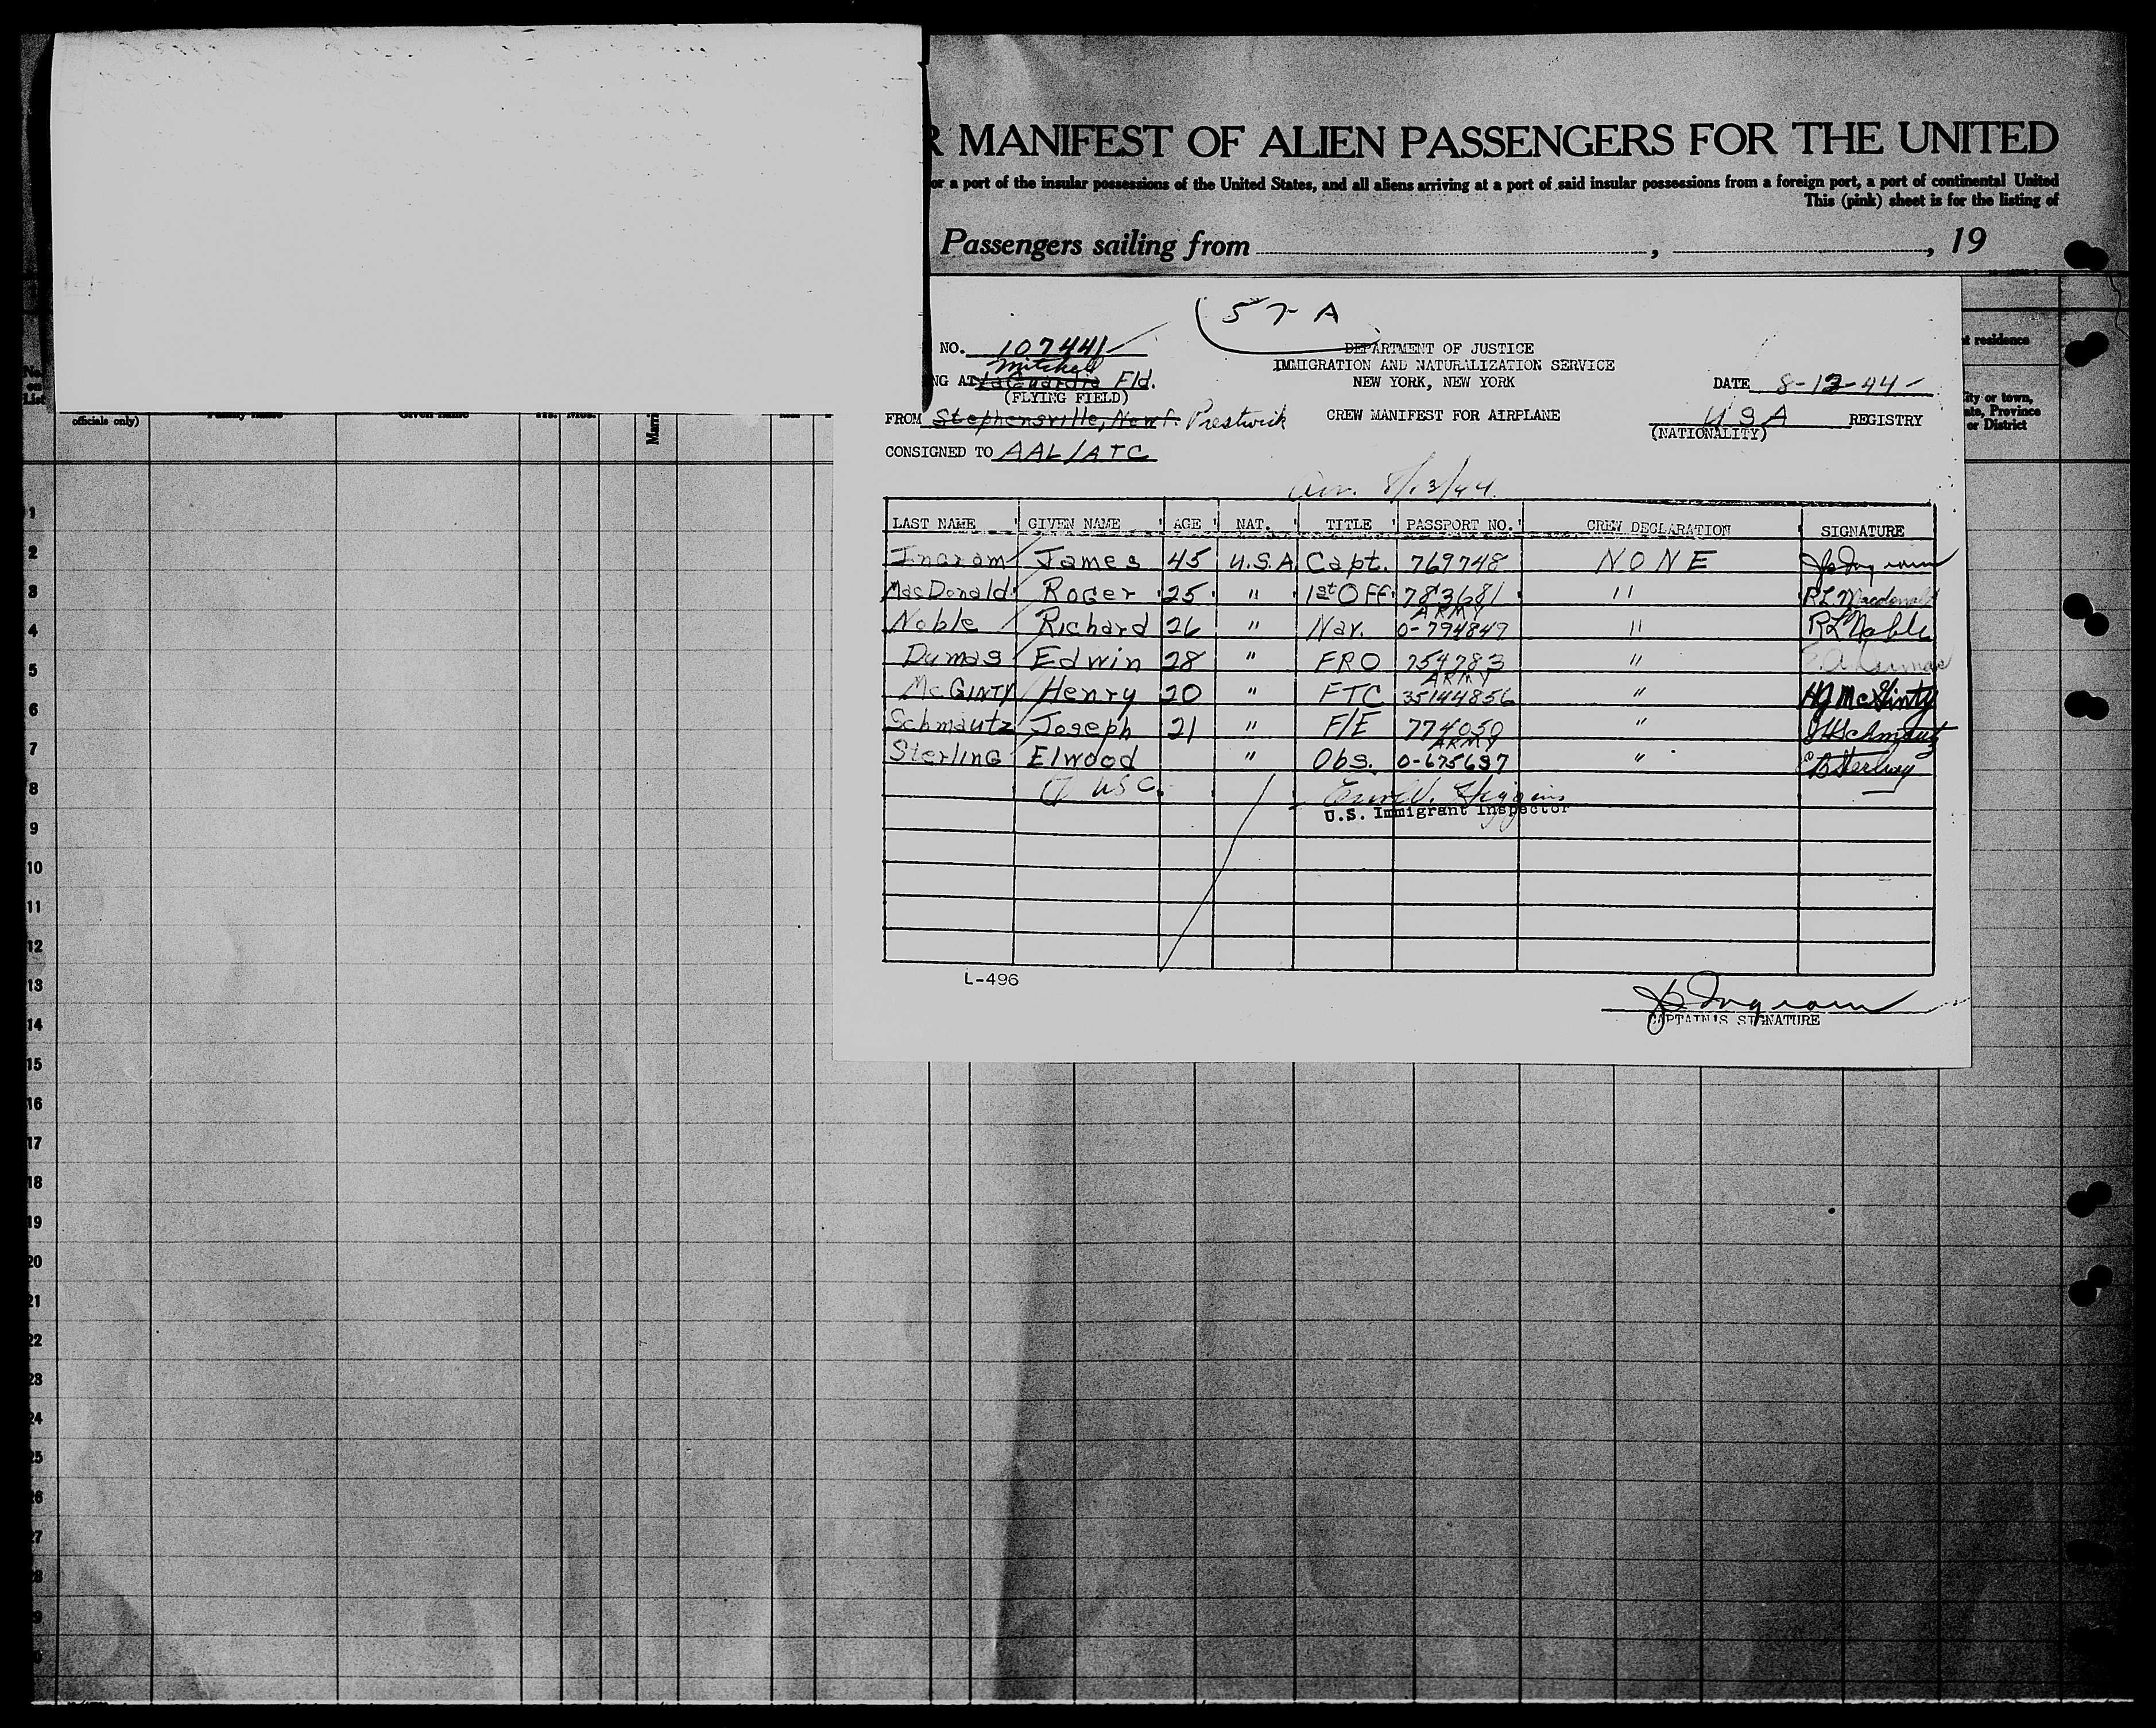 R MANIFEST OF ALIEN PASSENGERS FOR THE UNITED
or a port of the insular possessions of the United States, and all aliens arriving at a port of said insular possessions from a foreign port, a port of continental United
This (pink) sheet is for the listing of
Passengers sailing from , , 19
57-A
NO. 107441
DEPARTMENT OF JUSTICE
IMMIGRATION AND NATURALIZATION SERVICE
NEW YORK, NEW YORK
Mitchel
NG AT LaGuardia Fld.
(FLYING FIELD)
DATE 8-12-44
FROM Stephensville, Newf. Prestwick
CREW MANIFEST FOR AIRPLANE
USA REGISTRY
(NATIONALITY)
CONSIGNED TO AAL/ATC
Arr. 8/13/44
LAST NAME GIVEN NAME AGE NAT. TITLE PASSPORT NO. CREW DECLARATION SIGNATURE
Ingram James 45 U.S.A. Capt. 769748 NONE JB Ingram
MacDonald Roger 25 " 1st OFF. 783681 " RL Macdonald
Noble Richard 26 " Nav. ARMY 0-794849 " RL Noble
Dumas Edwin 28 " FRO 754783 " E A Dumas
McGinty Henry 20 " FTC ARMY 35144856 " HJ McGinty
Schmautz Joseph 21 " F/E 774050 " JH Schmautz
Sterling Elwood " Obs. ARMY 0-675697 " E B Sterling
7 USC. Higgins
U.S. Immigrant Inspector
L-496
JB Ingram
CAPTAIN'S SIGNATURE
t residence
City or town,
ate, Province
or District
No.
on
List
officials only)
Family name
Given name
Yrs. Mos.
Marri
1
2
3
4
5
6
7
8
9
10
11
12
13
14
15
16
17
18
19
20
21
22
23
24
25
26
27
28
9
0